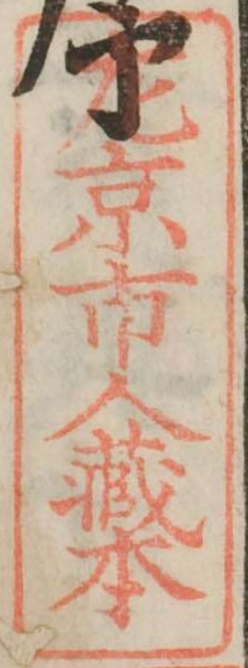 序
京市人藏本